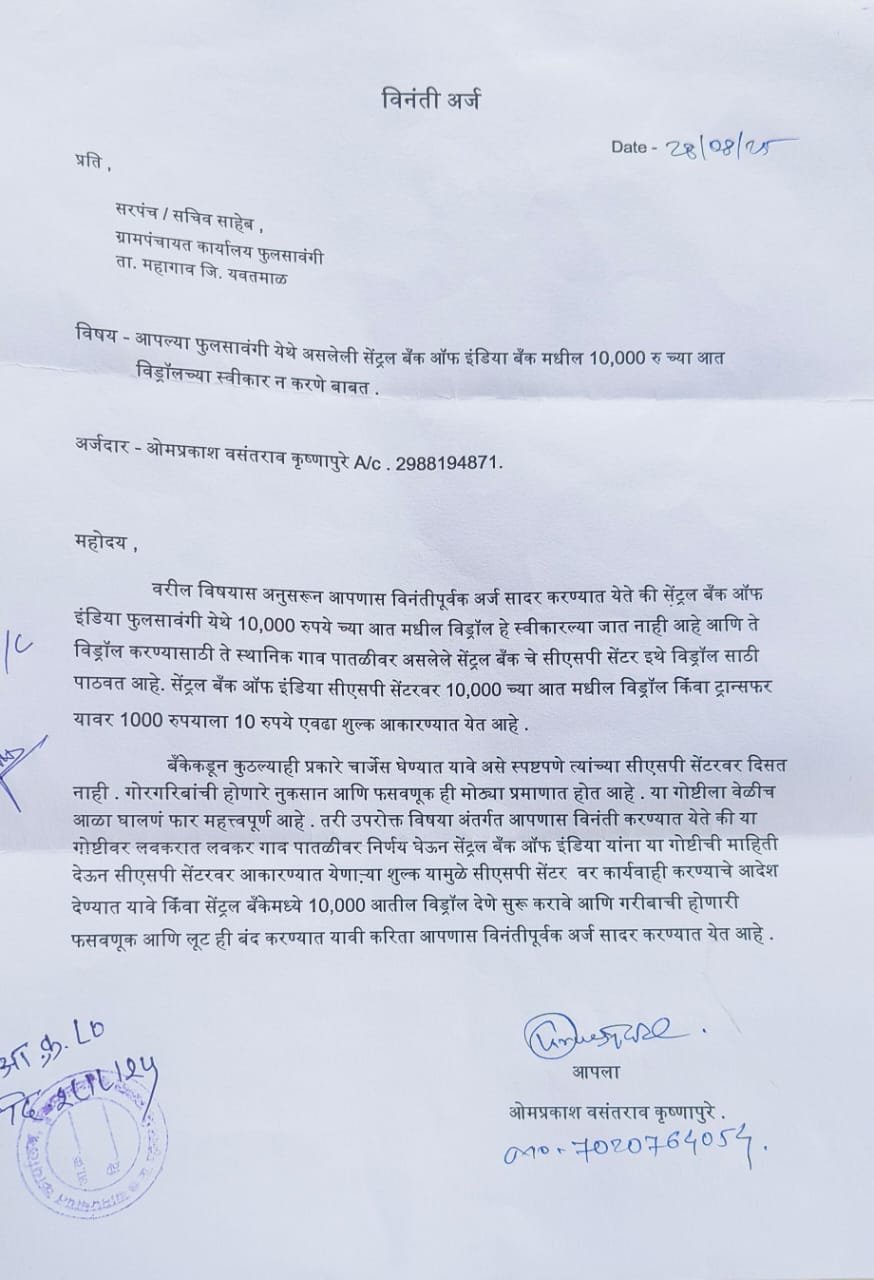 विनंती अर्ज
Date - 28/08/25
प्रति ,
सरपंच / सचिव साहेब ,
ग्रामपंचायत कार्यालय फुलसावंगी
ता. महागाव जि. यवतमाळ
विषय - आपल्या फुलसावंगी येथे असलेली सेंट्रल बँक ऑफ इंडिया बँक मधील 10,000 रु च्या आत
विड्रॉलच्या स्वीकार न करणे बाबत .
अर्जदार - ओमप्रकाश वसंतराव कृष्णापुरे A/c . 2988194871.
महोदय ,
वरील विषयास अनुसरून आपणास विनंतीपूर्वक अर्ज सादर करण्यात येते की सेंट्रल बँक ऑफ
इंडिया फुलसावंगी येथे 10,000 रुपये च्या आत मधील विड्रॉल हे स्वीकारल्या जात नाही आहे आणि ते
विड्रॉल करण्यासाठी ते स्थानिक गाव पातळीवर असलेले सेंट्रल बँक चे सीएसपी सेंटर इथे विड्रॉल साठी
पाठवत आहे. सेंट्रल बँक ऑफ इंडिया सीएसपी सेंटरवर 10,000 च्या आत मधील विड्रॉल किंवा ट्रान्सफर
यावर 1000 रुपयाला 10 रुपये एवढा शुल्क आकारण्यात येत आहे .
बँकेकडून कुठल्याही प्रकारे चार्जेस घेण्यात यावे असे स्पष्टपणे त्यांच्या सीएसपी सेंटरवर दिसत
नाही . गोरगरिबांची होणारे नुकसान आणि फसवणूक ही मोठ्या प्रमाणात होत आहे . या गोष्टीला वेळीच
आळा घालणं फार महत्त्वपूर्ण आहे . तरी उपरोक्त विषया अंतर्गत आपणास विनंती करण्यात येते की या
गोष्टीवर लवकरात लवकर गाव पातळीवर निर्णय घेऊन सेंट्रल बँक ऑफ इंडिया यांना या गोष्टीची माहिती
देऊन सीएसपी सेंटरवर आकारण्यात येणाऱ्या शुल्क यामुळे सीएसपी सेंटर वर कार्यवाही करण्याचे आदेश
देण्यात यावे किंवा सेंट्रल बँकेमध्ये 10,000 आतील विड्रॉल देणे सुरू करावे आणि गरीबाची होणारी
फसवणूक आणि लूट ही बंद करण्यात यावी करिता आपणास विनंतीपूर्वक अर्ज सादर करण्यात येत आहे .
आपला
ओमप्रकाश वसंतराव कृष्णापुरे .
mo. - 7020764054.